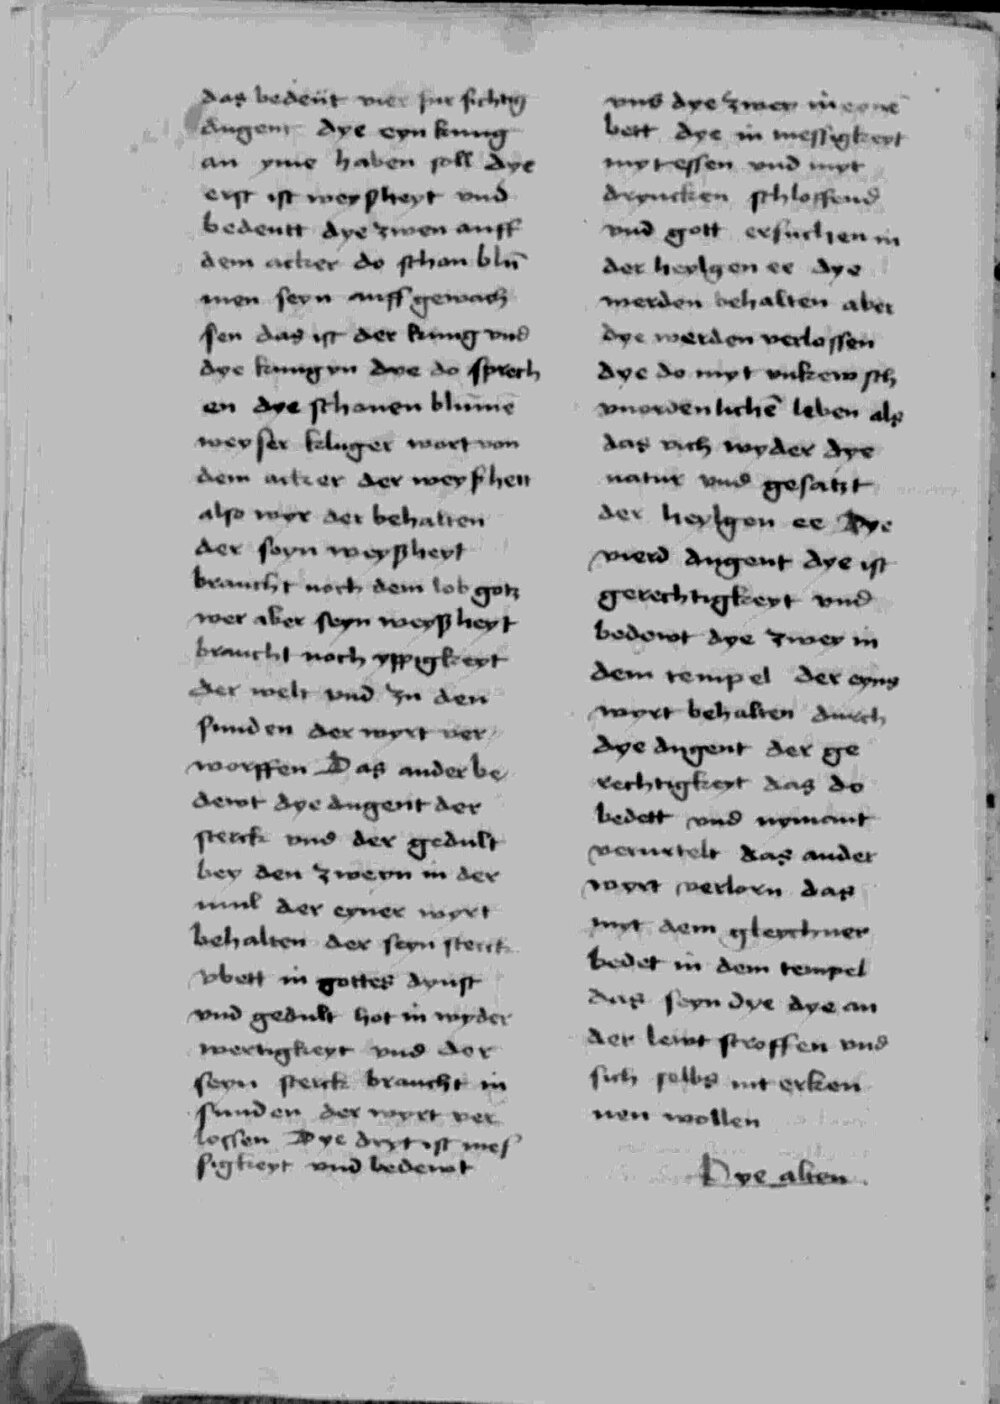 das bedeüt vier fur sichtig
dugent dye eyn kunig
an yme haben soll dye
erst ist weyßheyt vnd
bedeutt dye zwen auff
dem acker do schon blū
men seyn auff gewach
sen das ist der kunig vnd
dye kunigyn dye do sprech
en dye schonen blumē
weyser kluger wort von
dem acker der weyßheit
also wyr der behalten
der seyn weyßheyt
braucht noch dem lob gotz
wer aber seyn weyßheyt
braucht noch yppigkeyt
der welt vnd zu den
sunden der wyrt ver
worffen Das ander be
dewt dye dugent der
sterck vnd der gedult
bey den zweyn in der
mul der eyner wyrt
behalten der seyn sterck
vbett in gottes dynst
vnd gedult hot in wyder
wertigkeyt vnd der
seyn sterck braucht in
sunden der wyrt ver
lossen Dye dryt ist mes
sigkeyt vnd bedewt
vns dye zwey in eynē
bett dye in messigkeyt
myt essen vnd myt
dryncken schloffend
vnd gott ersuchen in
der heylgen ee dye
werden behalten aber
dye werden verlossen
dye do myt vnkewsch
vnordenlichē leben als
das vich wyder dye
natur vnd gesatzt
der heylgen ee Dye
vierd dugent dye ist
gerechtigkeyt vnd
bedewt dye zwey in
dem tempel der eyns
wyrt behalten durch
dye dugent der ge
rechtigkeyt das do
bedett vnd nymant
verurtelt das ander
wyrt verlorn das
myt dem gleychner
bedet in dem tempel
das seyn dye dye an
der lewt stroffen vnd
sich selbs nit erken
nen wollen
Dye alten